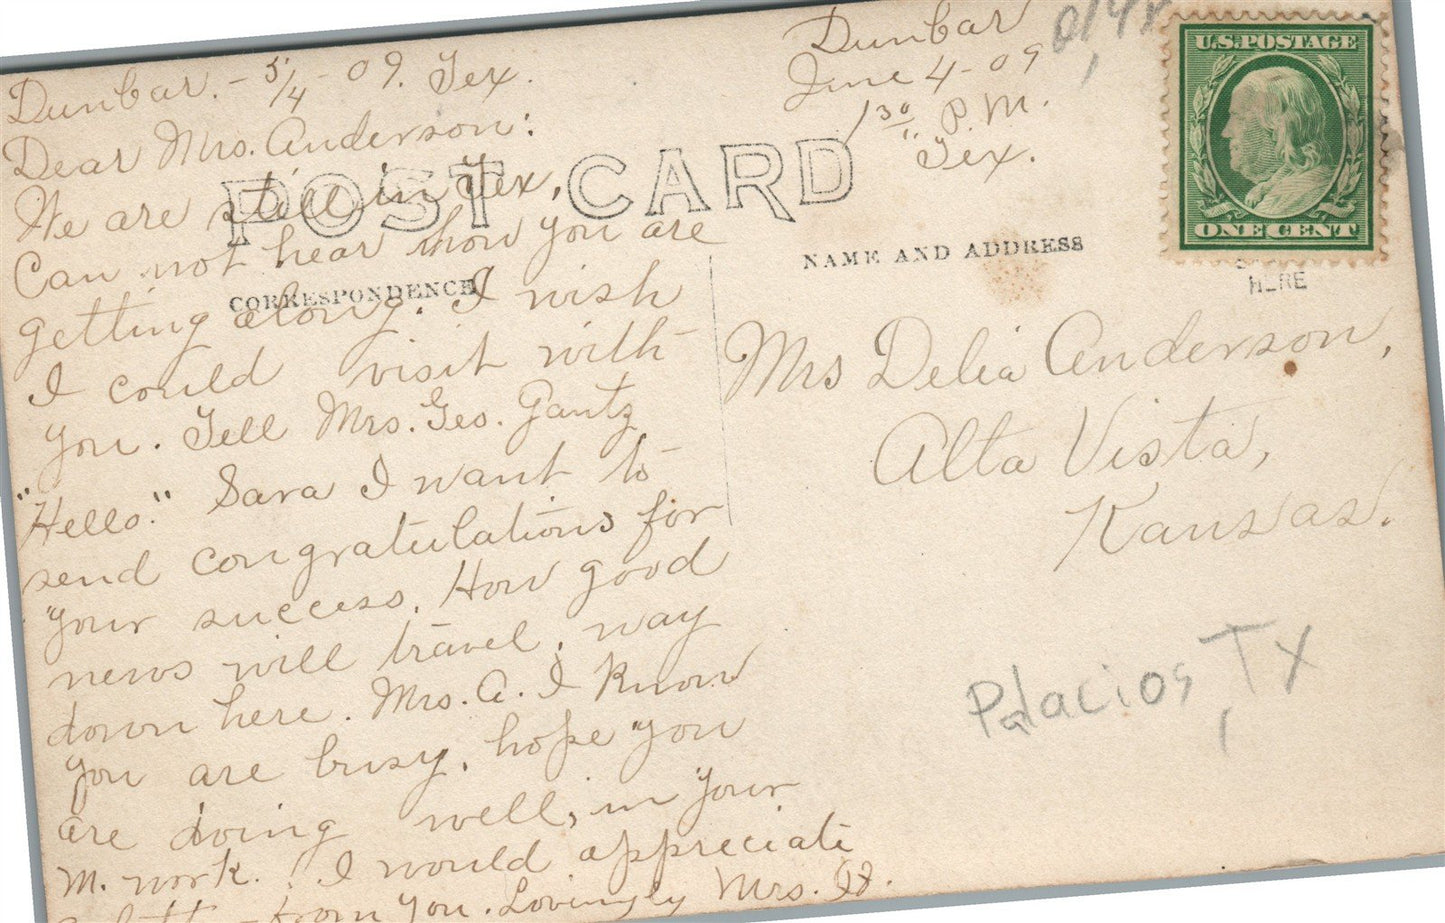 Dunbar. - 5/4 - 09. Tex.
Dear Mrs. Anderson:
We are still in Tex,
Can not hear how you are
getting along. I wish
I could visit with
you. Tell Mrs. Geo. Gantz
"Hello." Sara I want to
send congratulations for
your success. How good
news will travel, way
down here. Mrs. A. I know
you are busy, hope you
are doing well, in your
m. work. I would appreciate
from you. Lovingly Mrs.
POST CARD
CORRESPONDENCE
Dunbar
June 4 - 09
1 30/" P. M.
Tex.
NAME AND ADDRESS
U.S. POSTAGE
ONE CENT
HERE
Mrs Delia Anderson,
Alta Vista,
Kansas.
Palacios, TX